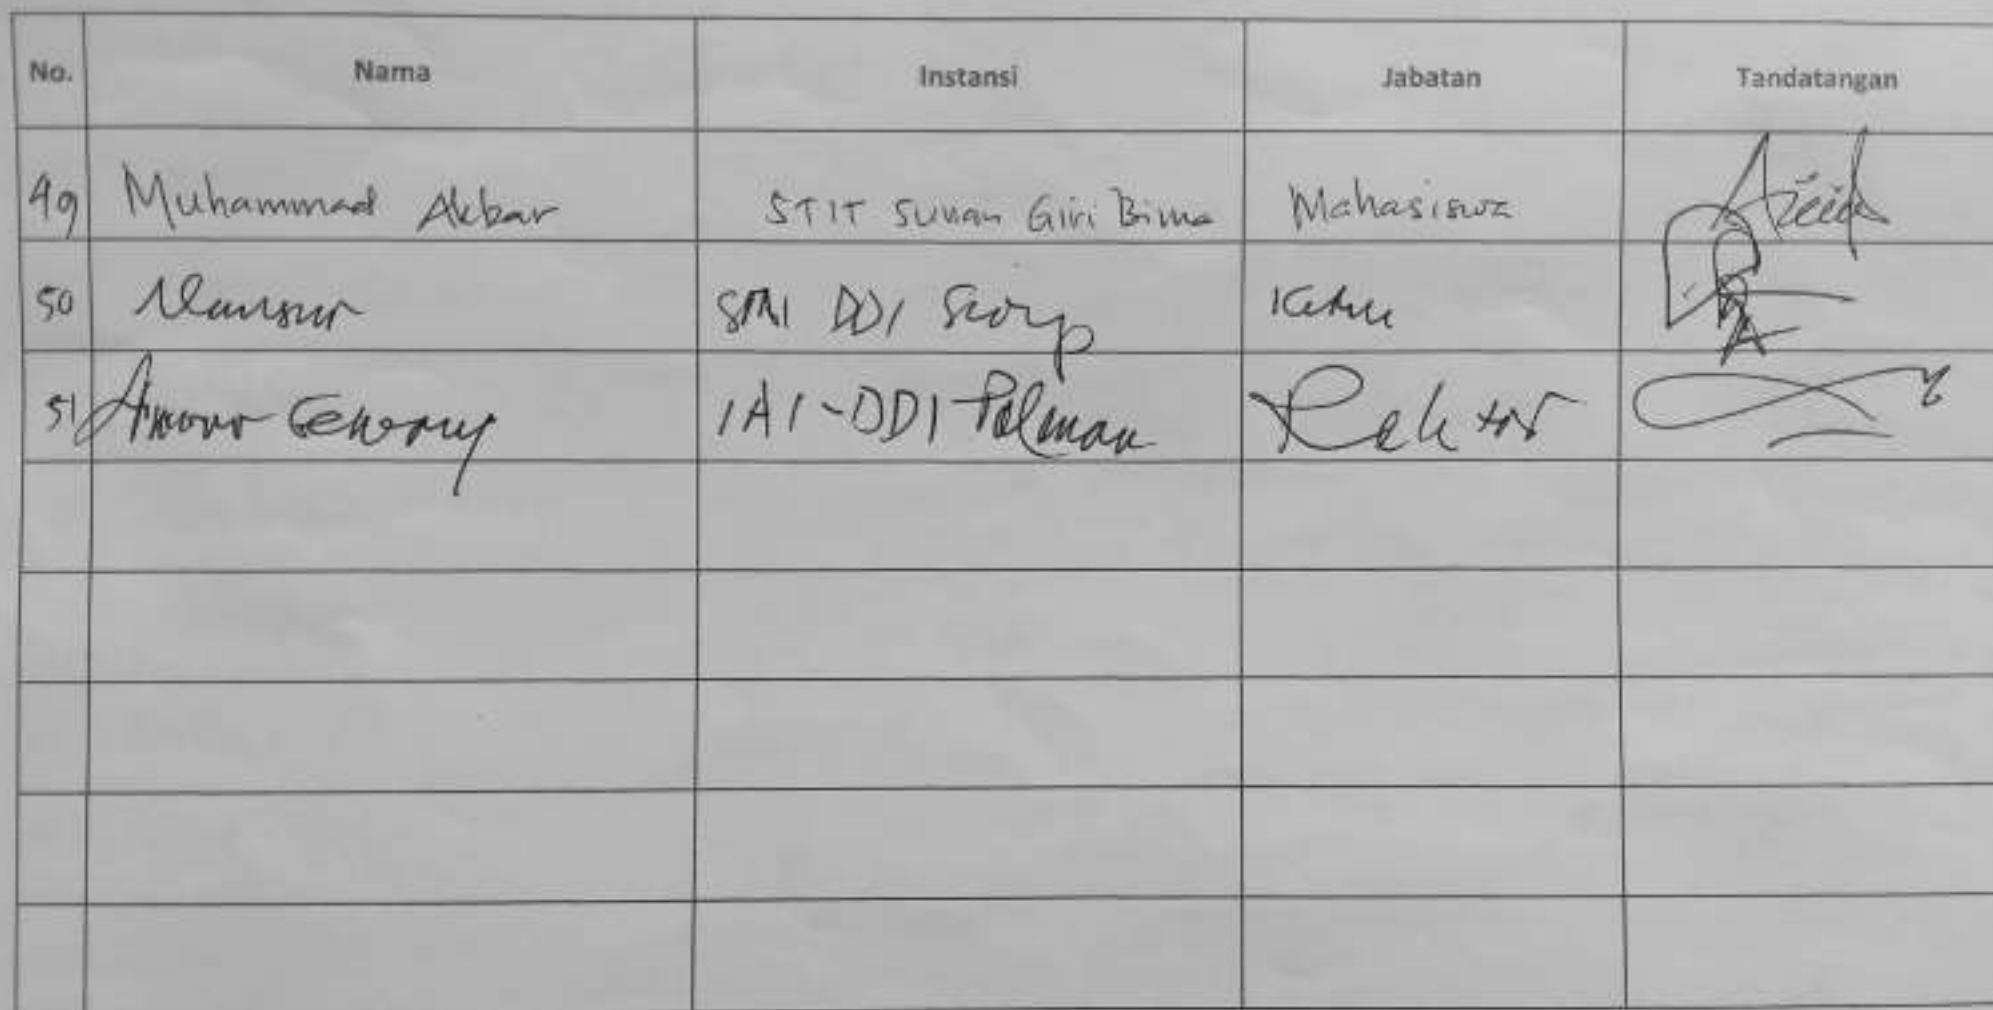 No. Nama Instansi Jabatan Tandatangan
49 Muhammad Akbar STIT Sunan Giri Bima Mahasiswa
50 Mansur DDI Ketua
51 IAI-DDI Polman Rektor